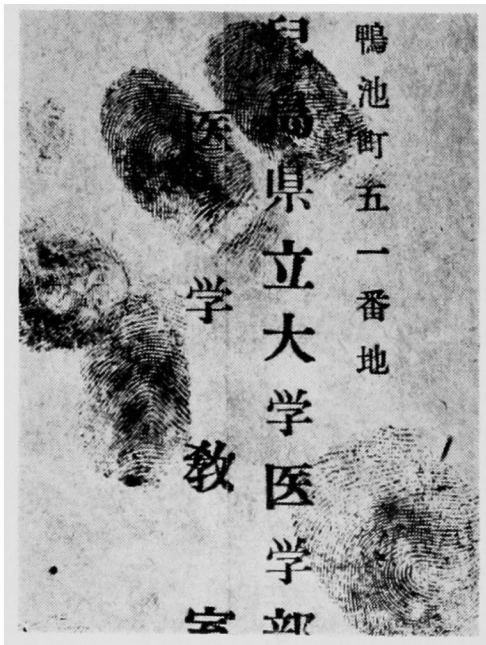 鴨池町五一番地
児島県立大学医学部
医学教室